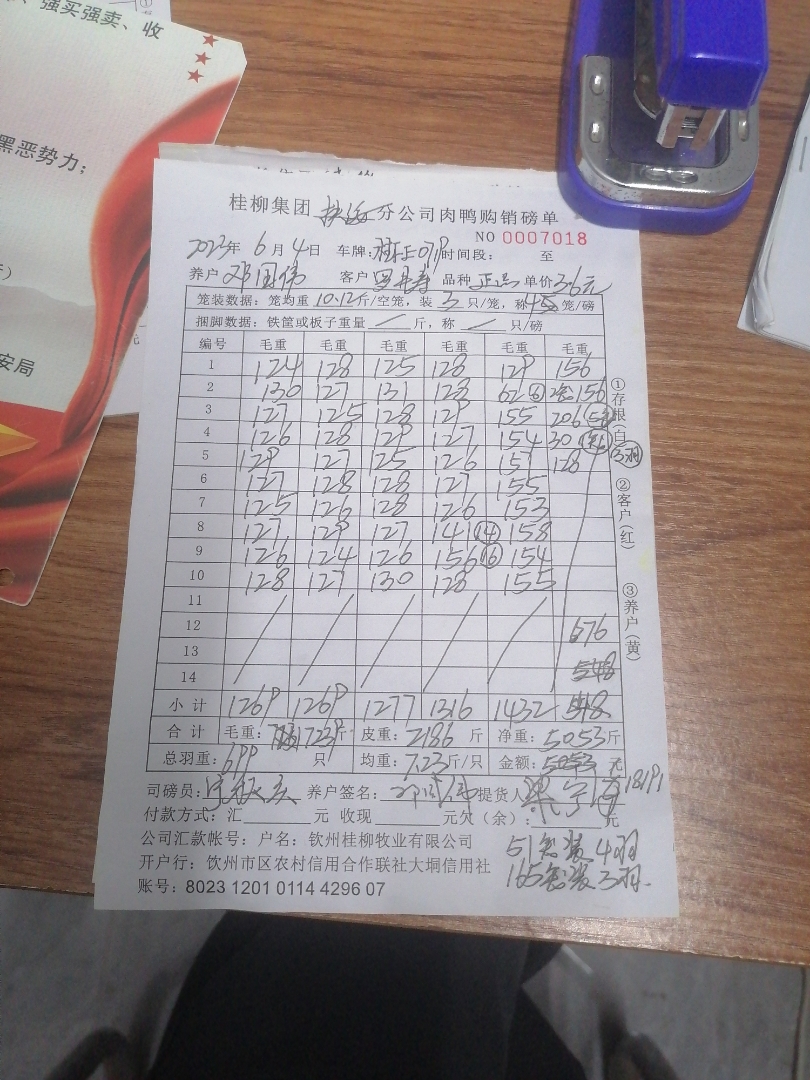 强买强卖、收
黑恶势力；
安局
桂柳集团 分公司肉鸭购销磅单
NO 0007018
2023年 6月4日 车牌: 时间段: 至
养户 邓国伟 客户 品种 正品 单价3.6元
笼装数据：笼均重 10.12斤/空笼，装 3 只/笼，称 笼/磅
捆脚数据：铁筐或板子重量 / 斤，称 / 只/磅
编号 毛重 毛重 毛重 毛重 毛重 毛重
1 124 128 125 128 129 156
2 130 127 131 128 62 ⑥ 156
3 127 125 128 129 155 206
4 126 128 129 127 154 30
5 129 127 125 126 157 128 3羽
6 127 128 128 127 155
7 125 126 128 126 153
8 127 129 127 141 ⑭ 158
9 126 124 126 156 ⑯ 154
10 128 127 130 128 155
11
12 676
13 548
14
小计 1269 1269 1277 1316 1432
合计 毛重: 7239斤 皮重: 2186 斤 净重: 5053斤
总羽重: 699 只 均重: 7.23斤/只 金额: 5053 元
18191
司磅员: 养户签名: 提货人
付款方式：汇 元 收现 元欠（余）: 元
公司汇款帐号：户名：钦州桂柳牧业有限公司
开户行：钦州市区农村信用合作联社大垌信用社
账号：8023 1201 0114 4296 07
51笼装4羽
165笼装3羽
①存根（白）
②客户（红）
③养户（黄）